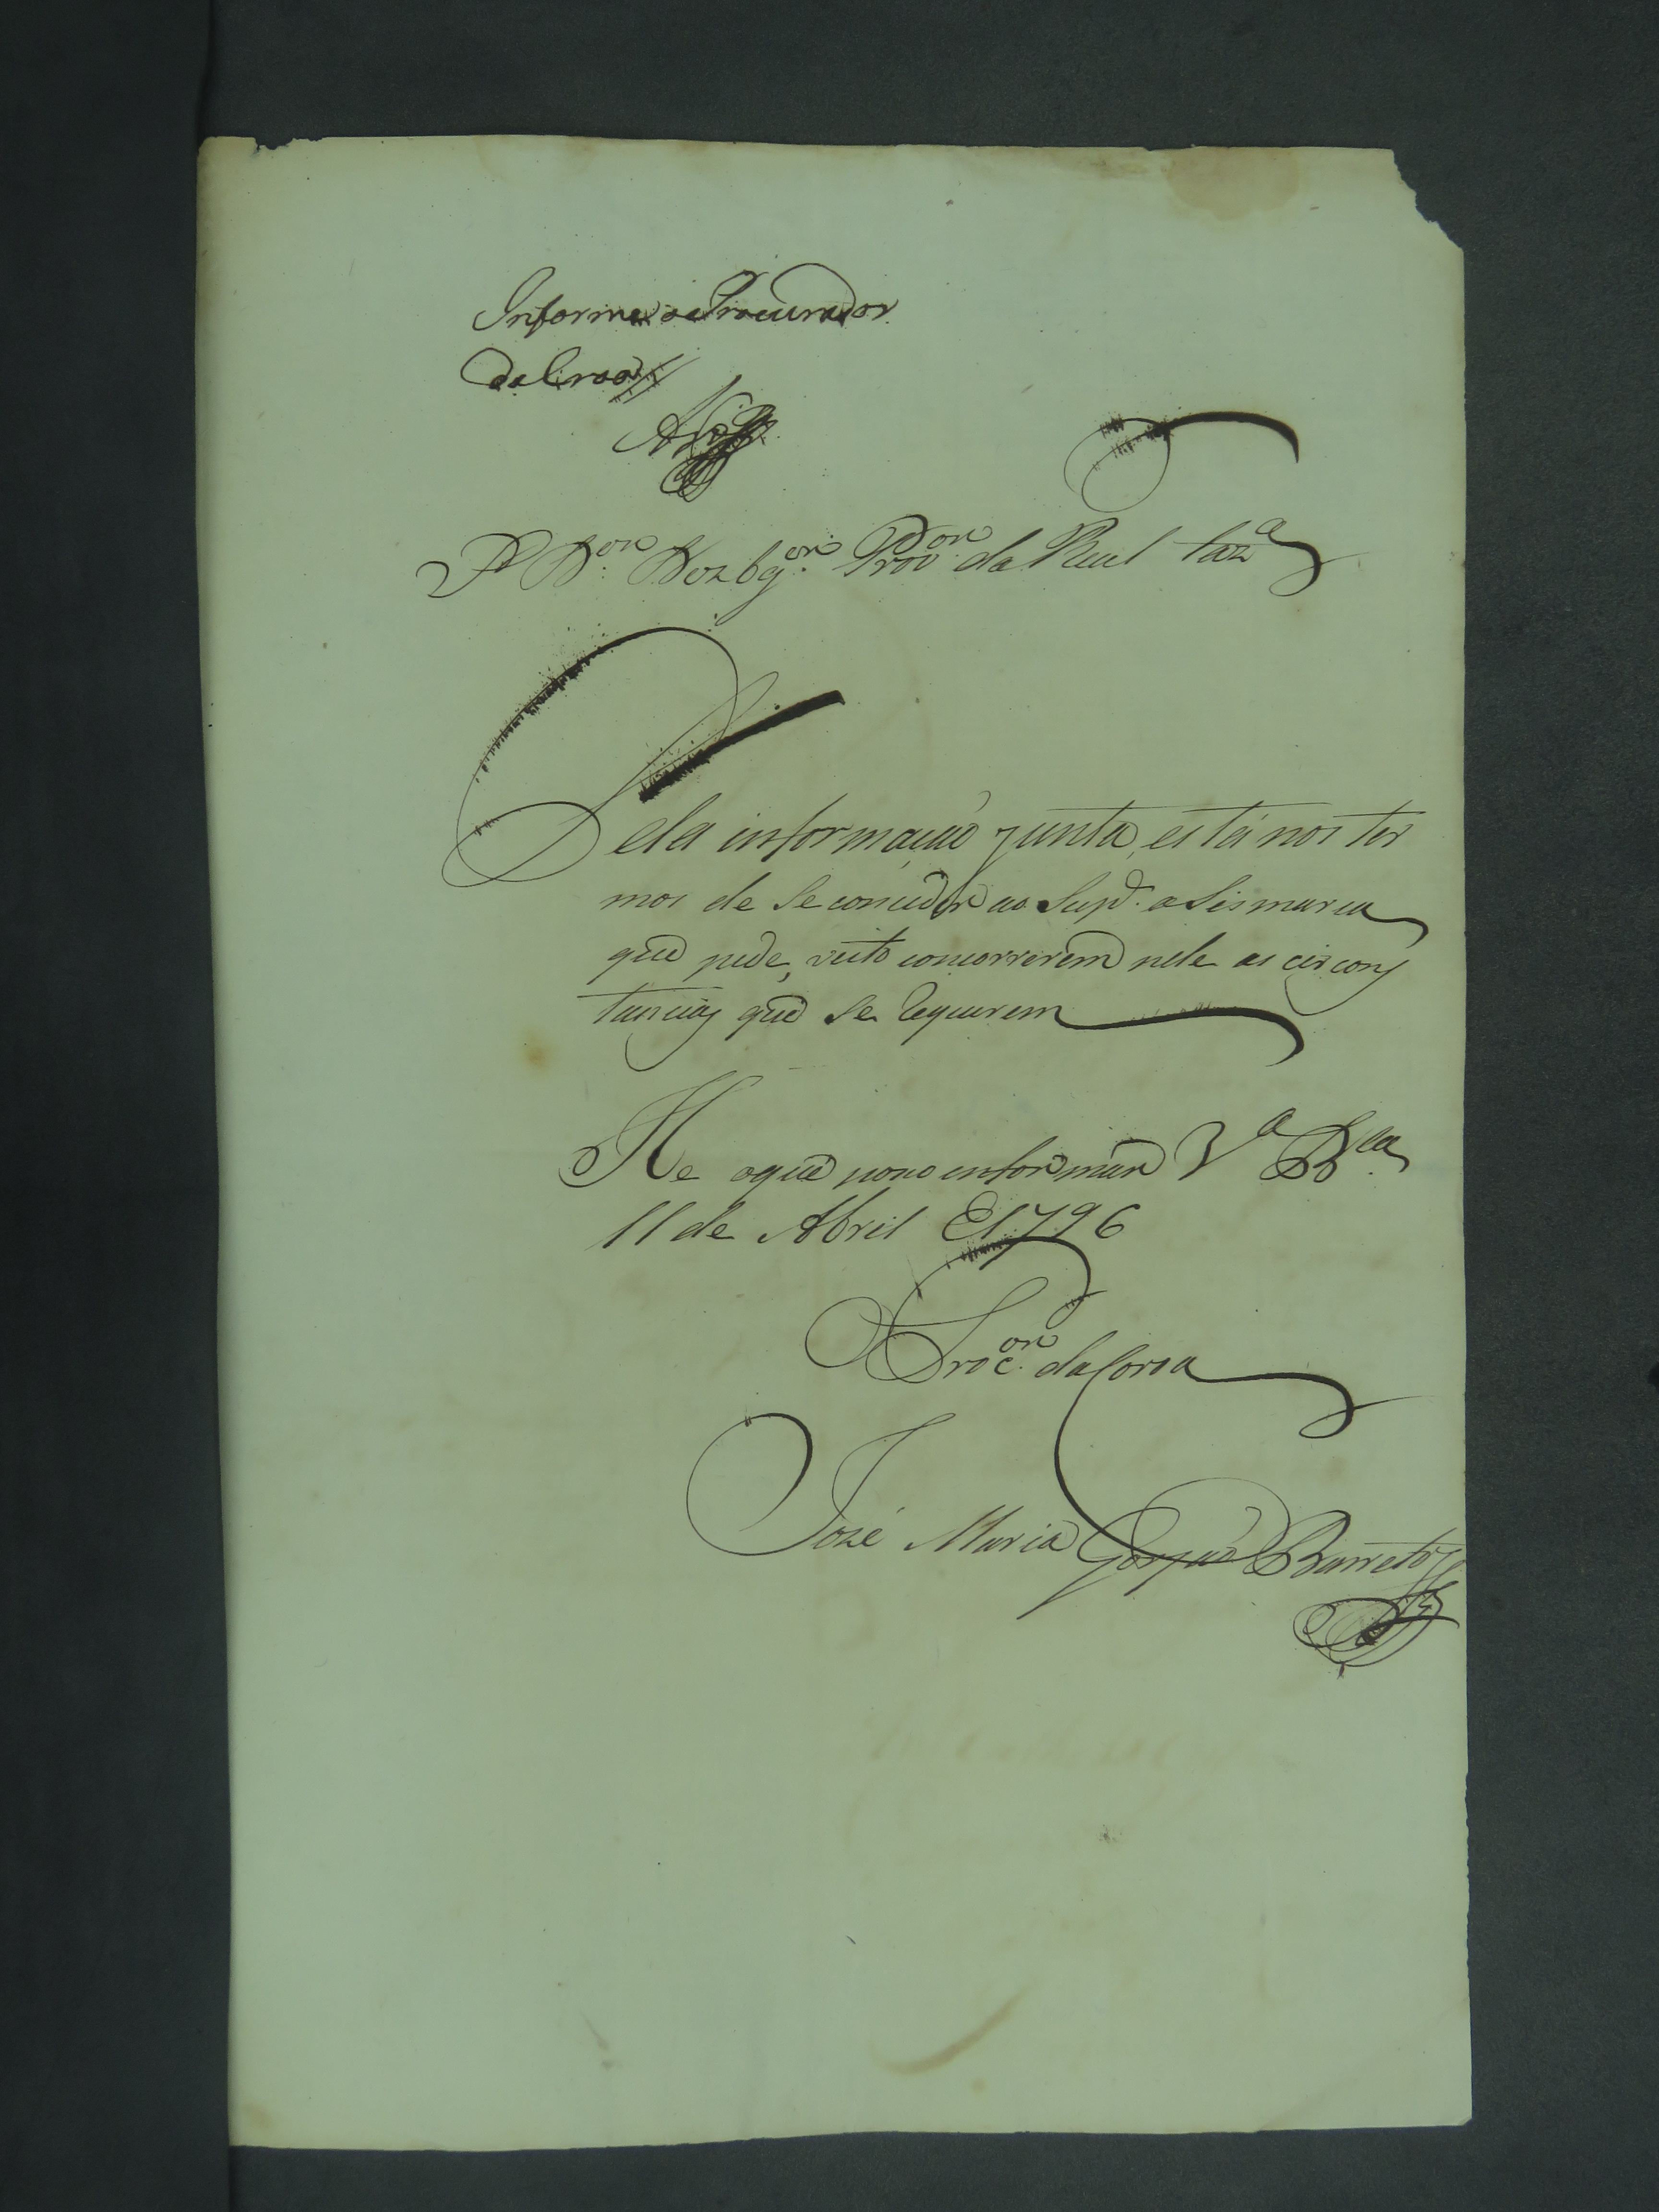 Informe o Procurador
da Croa//
S.or Dezbg.or Prov.or da Real Faz.a
Pela informaçaõ junta, está nos ter
mos de se conceder ao Sup.e a Sismaria
que pede, visto concorrerem nele as circons
tancias que se requerem
He o que poso informar V.a B.la
11 de Abril de 1796
O Proc.or da Coroa
José Maria Barreto